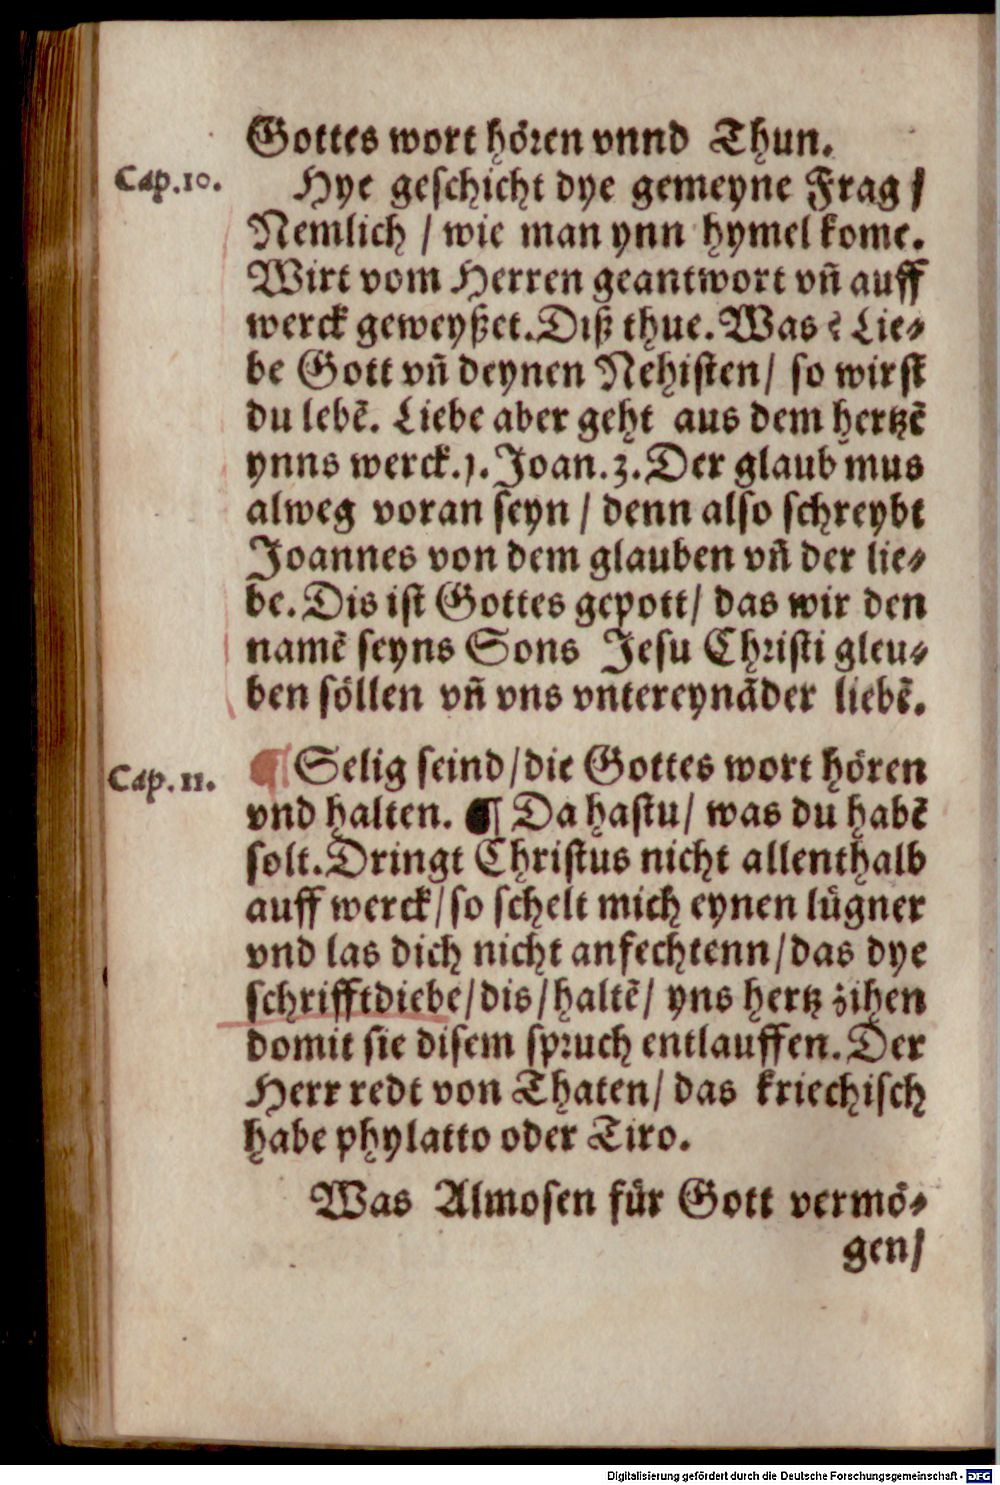 Gottes wort hören vnnd Thun.
Cap.10. Hye geschicht dye gemeyne Frag /
Nemlich / wie man ynn hymel kome.
Wirt vom Herren geantwort vñ auff
werck geweyßet. Diß thue. Was? Lie-
be Gott vñ deynen Nehisten / so wirst
du lebē. Liebe aber geht aus dem hertzē
ynns werck. 1. Joan. 3. Der glaub mus
alweg voran seyn / denn also schreybt
Joannes von dem glauben vñ der lie-
be. Dis ist Gottes gepott / das wir den
namē seyns Sons Jesu Christi gleu-
ben söllen vñ vns vntereynāder liebē.
Cap.11. ¶ Selig seind / die Gottes wort hören
vnd halten. ¶ Da hastu / was du habē
solt. Dringt Christus nicht allenthalb
auff werck / so schelt mich eynen lügner
vnd las dich nicht anfechtenn / das dye
schrifftdiebe / dis / haltē / yns hertz zihen
domit sie disem spruch entlauffen. Der
Herr redt von Thaten / das kriechisch
habe phylatto oder Tiro.
Was Almosen für Gott vermö-
gen /
Digitalisierung gefördert durch die Deutsche Forschungsgemeinschaft - DFG